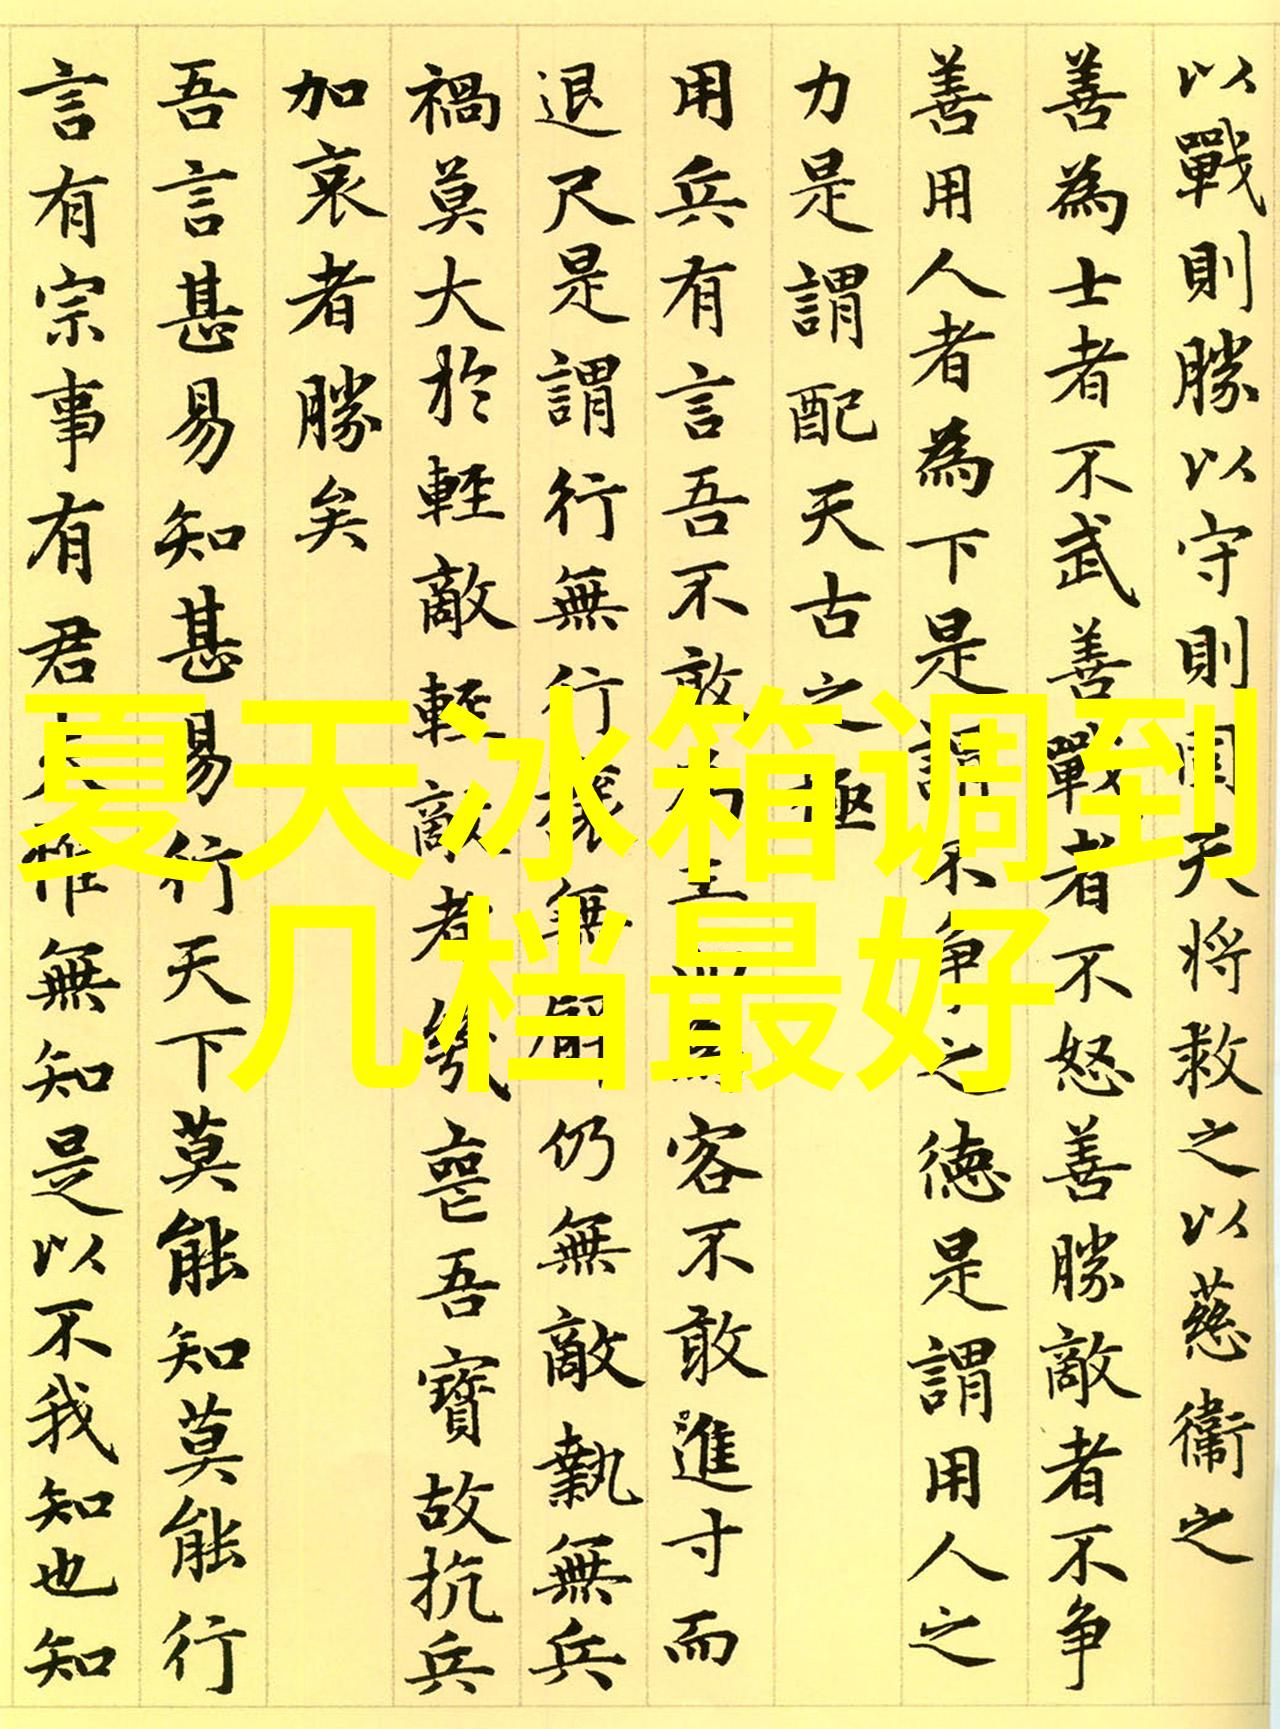 以戰則勝以守則固天将救之以慈衞之
善為士者不武善戰者不怒善勝敵者不争
善用人者為下是謂不争之德是謂用人之
力是謂配天古之極
用兵有言吾不敢為主而為客不敢進寸而
退尺是謂行無行攘無臂仍無敵執無兵
禍莫大於輕敵輕敵者幾喪吾寶故抗兵
加哀者勝矣
吾言甚易知甚易行天下莫能知莫能行
言有宗事有君夫惟無知是以不我知也知
夏天冰箱调到
几档最好